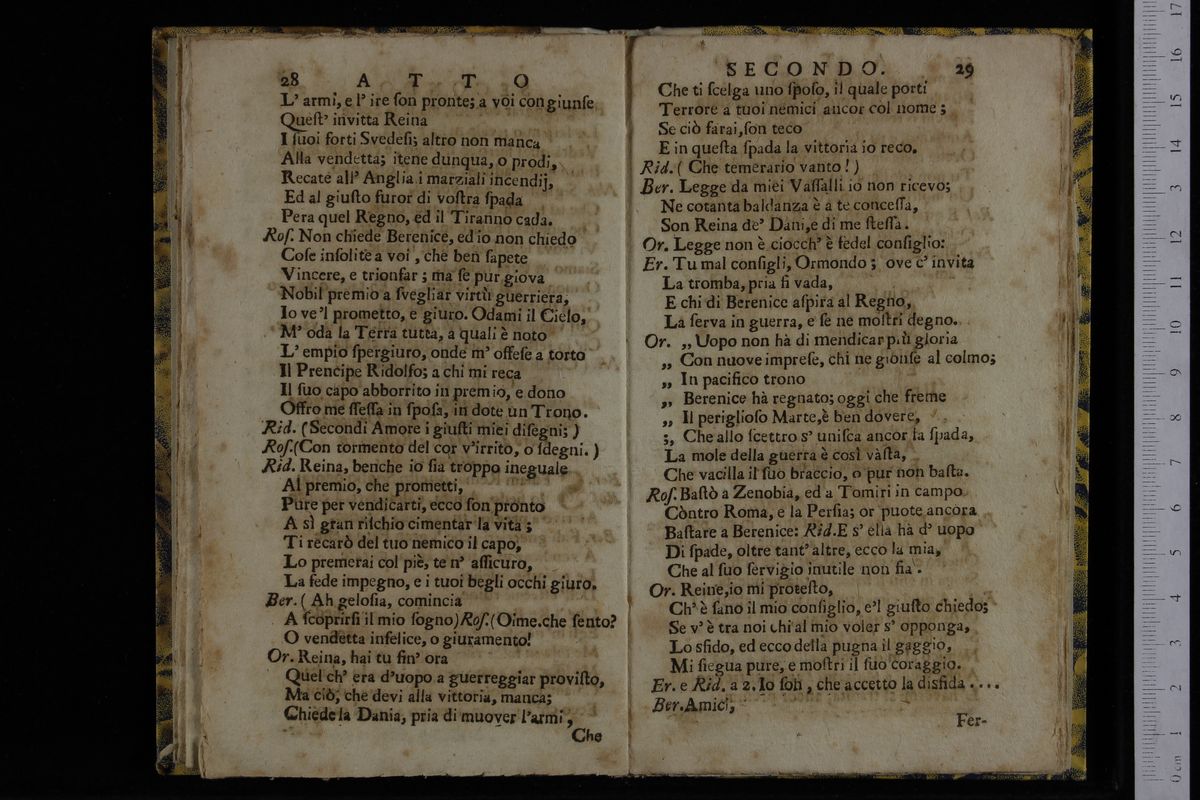 28 A T T O
L' armi, e l' ire ſon pronte; a voi congiunſe
Queſt' invitta Reina
I ſuoi forti Svedeſi; altro non manca
Alla vendetta; itene dunqua, o prodi,
Recate all' Anglia i marziali incendij,
Ed al giuſto furor di voſtra ſpada
Pera quel Regno, ed il Tiranno cada.
Roſ. Non chiede Berenice, ed io non chiedo
Coſe inſolite a voi, che ben ſapete
Vincere, e trionfar; ma ſe pur giova
Nobil premio a ſvegliar virtù guerriera,
Io ve'l prometto, e giuro. Odami il Cielo,
M' oda la Terra tutta, a quali è noto
L' empio ſpergiuro, onde m' offeſe a torto
Il Prencipe Ridolfo; a chi mi reca
Il ſuo capo abborrito in premio, e dono
Offro me ſteſſa in ſpoſa, in dote un Trono.
Rid. (Secondi Amore i giuſti miei diſegni;)
Roſ.(Con tormento del cor v'irrito, o ſdegni.)
Rid. Reina, benche io ſia troppo ineguale
Al premio, che prometti,
Pure per vendicarti, ecco ſon pronto
A sì gran riſchio cimentar la vita;
Ti recarò del tuo nemico il capo,
Lo premerai col piè, te n' aſſicuro,
La fede impegno, e i tuoi begli occhi giuro.
Ber. ( Ah geloſia, comincia
A ſcoprirſi il mio ſogno) Roſ.(Oime.che ſento?
O vendetta infelice, o giuramento!
Or. Reina, hai tu fin' ora
Quel ch' era d'uopo a guerreggiar proviſto,
Ma ciò, che devi alla vittoria, manca;
Chiede la Dania, pria di muover l'armi,
Che
SECONDO. 29
Che ti ſcelga uno ſpoſo, il quale porti
Terrore a tuoi nemici ancor col nome;
Se ciò farai, ſon teco
E in queſta ſpada la vittoria io reco.
Rid. ( Che temerario vanto! )
Ber. Legge da miei Vaſſalli io non ricevo;
Ne cotanta baldanza è a te conceſſa,
Son Reina de' Dani, e di me ſteſſa.
Or. Legge non è ciocch' è fedel conſiglio:
Er. Tu mal conſigli, Ormondo; ove c' invita
La tromba, pria ſi vada,
E chi di Berenice aſpira al Regno,
La ſerva in guerra, e ſe ne moſtri degno.
Or. „ Uopo non hà di mendicar più gloria
„ Con nuove impreſe, chi ne gionſe al colmo;
„ In pacifico trono
„ Berenice hà regnato; oggi che freme
„ Il periglioſo Marte, è ben dovere,
„ Che allo ſcettro s' uniſca ancor la ſpada,
La mole della guerra è così vàſta,
Che vacilla il ſuo braccio, o pur non baſta.
Roſ. Baſtò a Zenobia, ed a Tomiri in campo
Còntro Roma, e la Perſia; or puote ancora
Baſtare a Berenice: Rid. E s' ella hà d' uopo
Di ſpade, oltre tant' altre, ecco la mia,
Che al ſuo ſervigio inutile non ſia.
Or. Reine, io mi proteſto,
Ch' è ſano il mio conſiglio, e'l giuſto chiedo;
Se v' è tra noi chi al mio voler s' opponga,
Lo sfido, ed ecco della pugna il gaggio,
Mi ſiegua pure, e moſtri il ſuo coraggio.
Er. e Rid. a 2. Io ſon, che accetto la disfida ....
Ber. Amici,
Fer-
0 cm 1 2 3 4 5 6 7 8 9 10 11 12 13 14 15 16 17